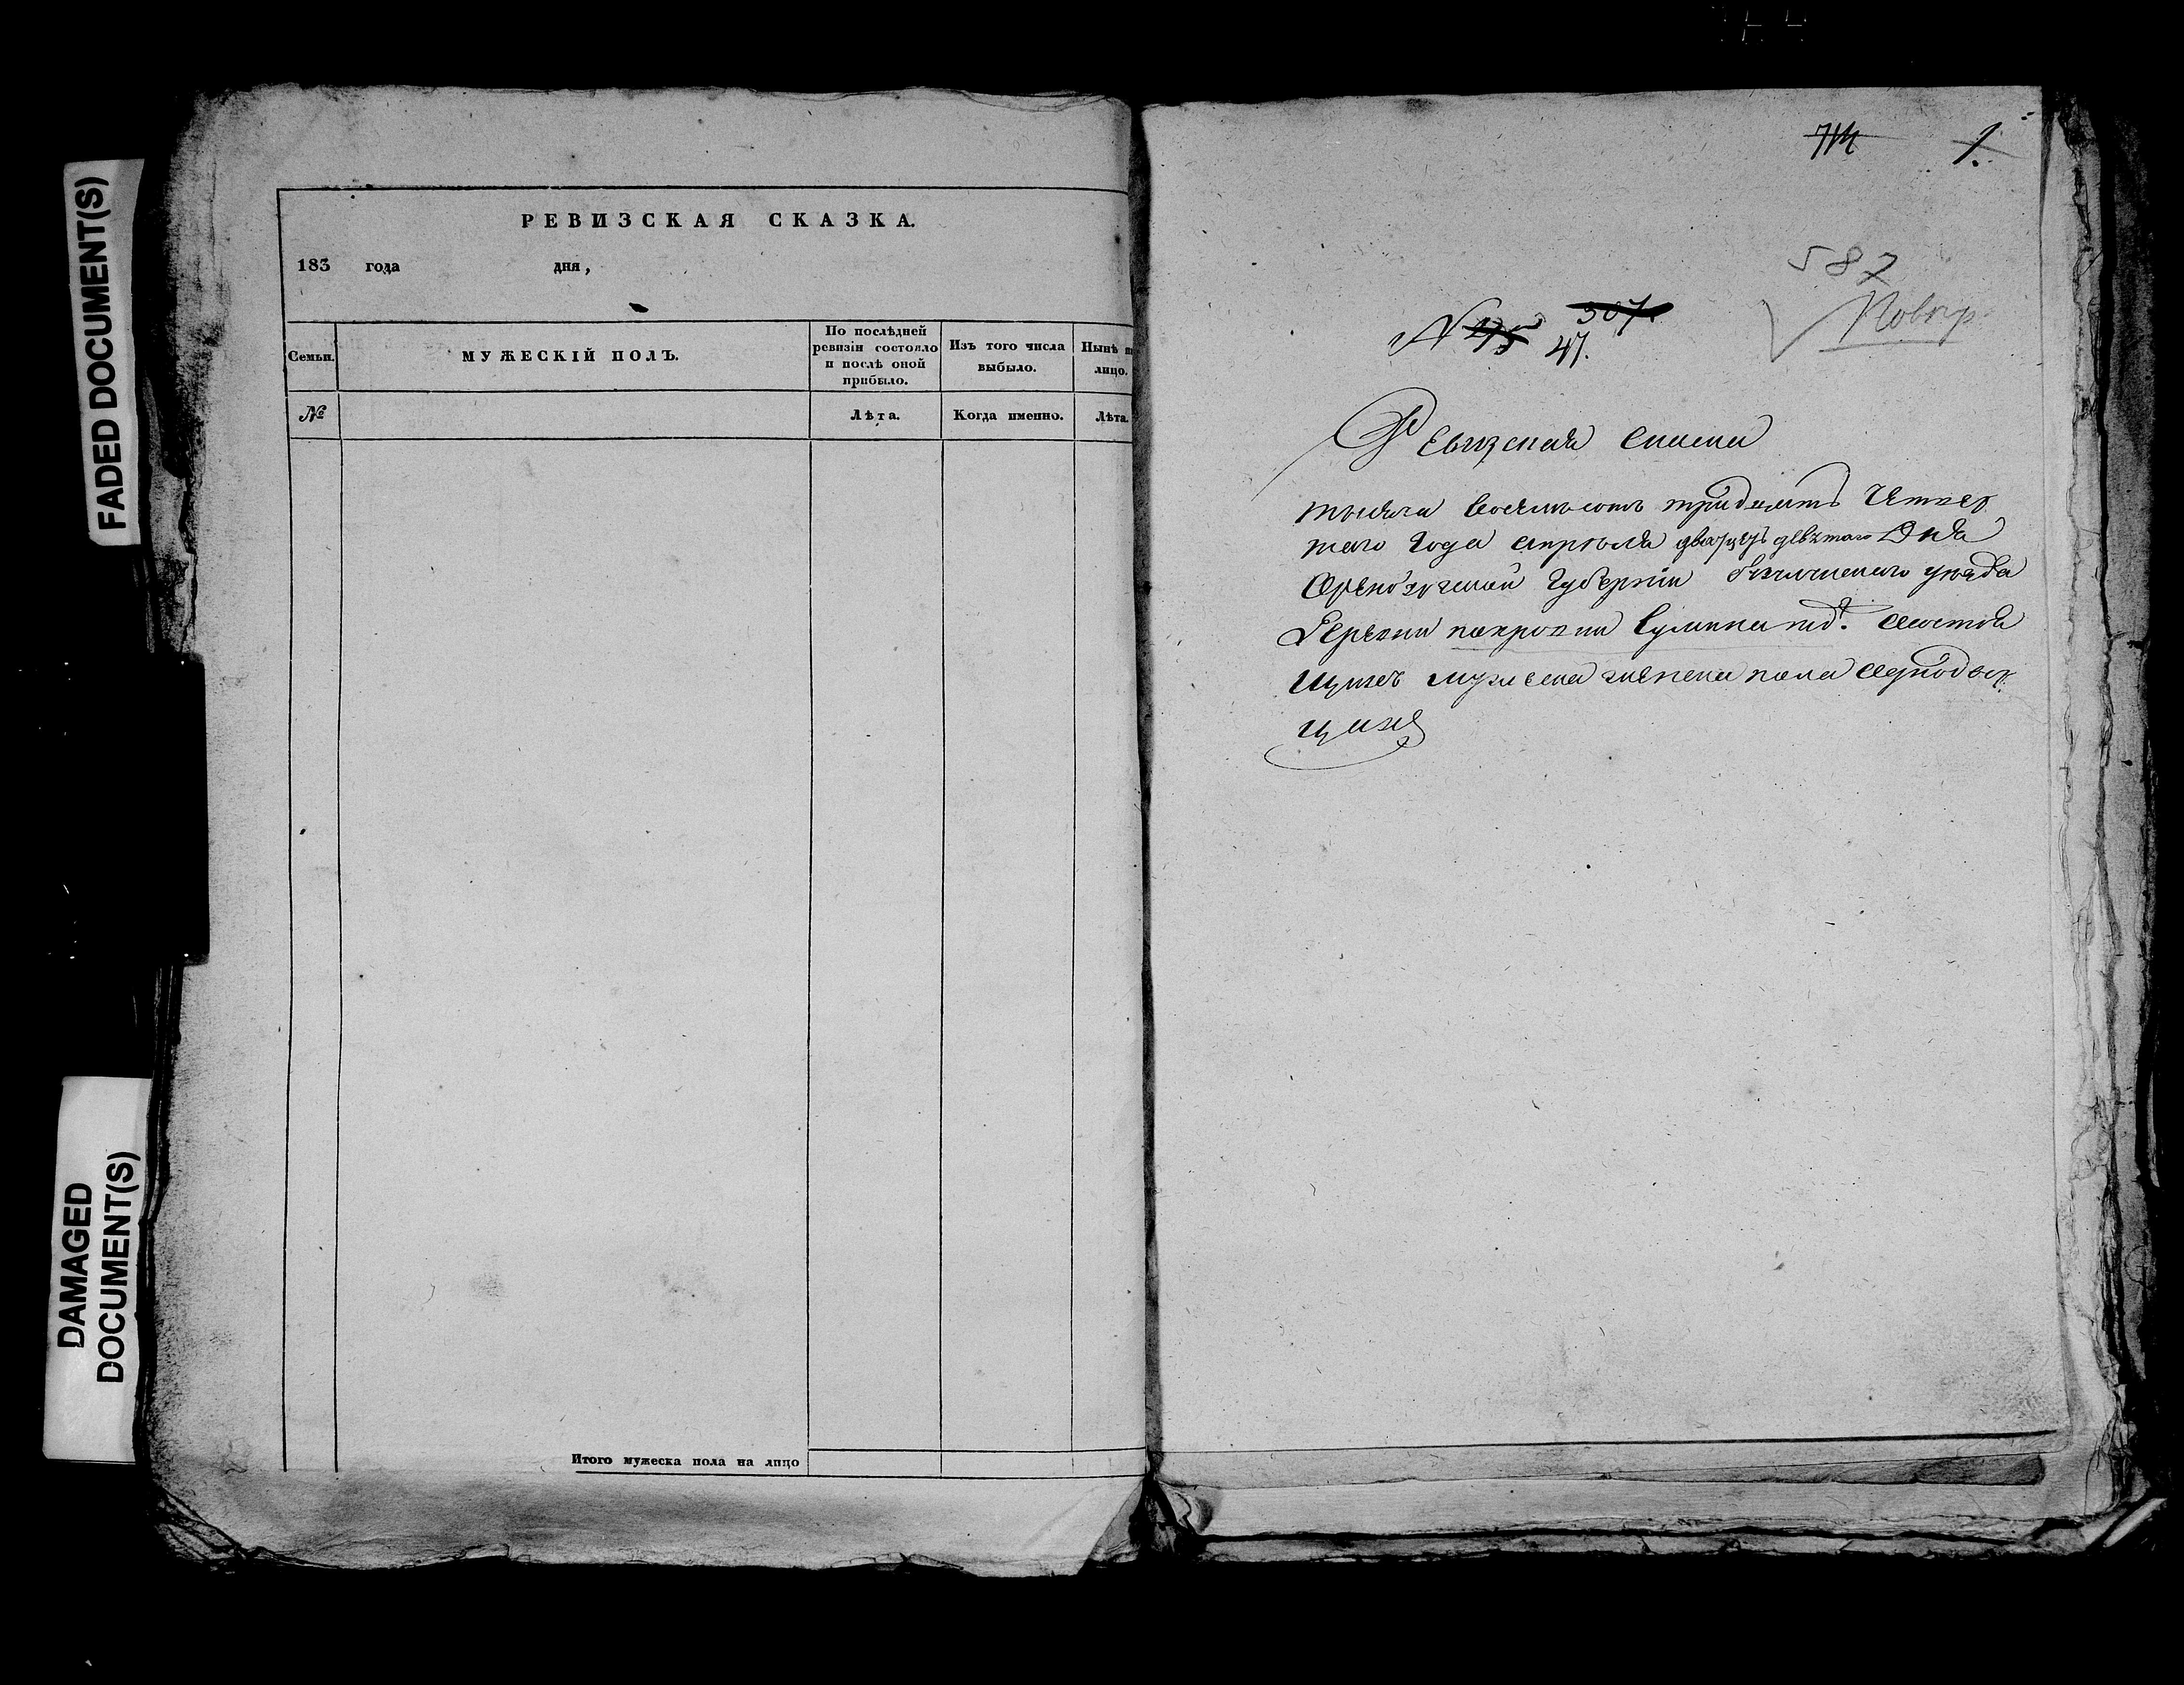 FADED DOCUMENT(S)
DAMAGED
DOCUMENT(S)
РЕВИЗСКАЯ СКАЗКА.
183 года дня,
Семьи.
МУЖЕСКІЙ ПОЛЪ.
По послѣдней
ревизіи состояло
и послѣ оной
прибыло.
Изъ того числа
выбыло.
Нынѣ
лицо.
№
Лѣта.
Когда именно.
Лѣта.
Итого мужеска пола на лицо
1.
587
Покр
307.
N 47.
Ревизская скаска
тысяча восемьсотъ тридцать четвер
таго года апрѣля двадцать девятаго Дня
Оренбургской Губерніи уѣзда
Деревни покровки тожъ. состоя
щихъ мужеска женска пола однодвор
цахъ